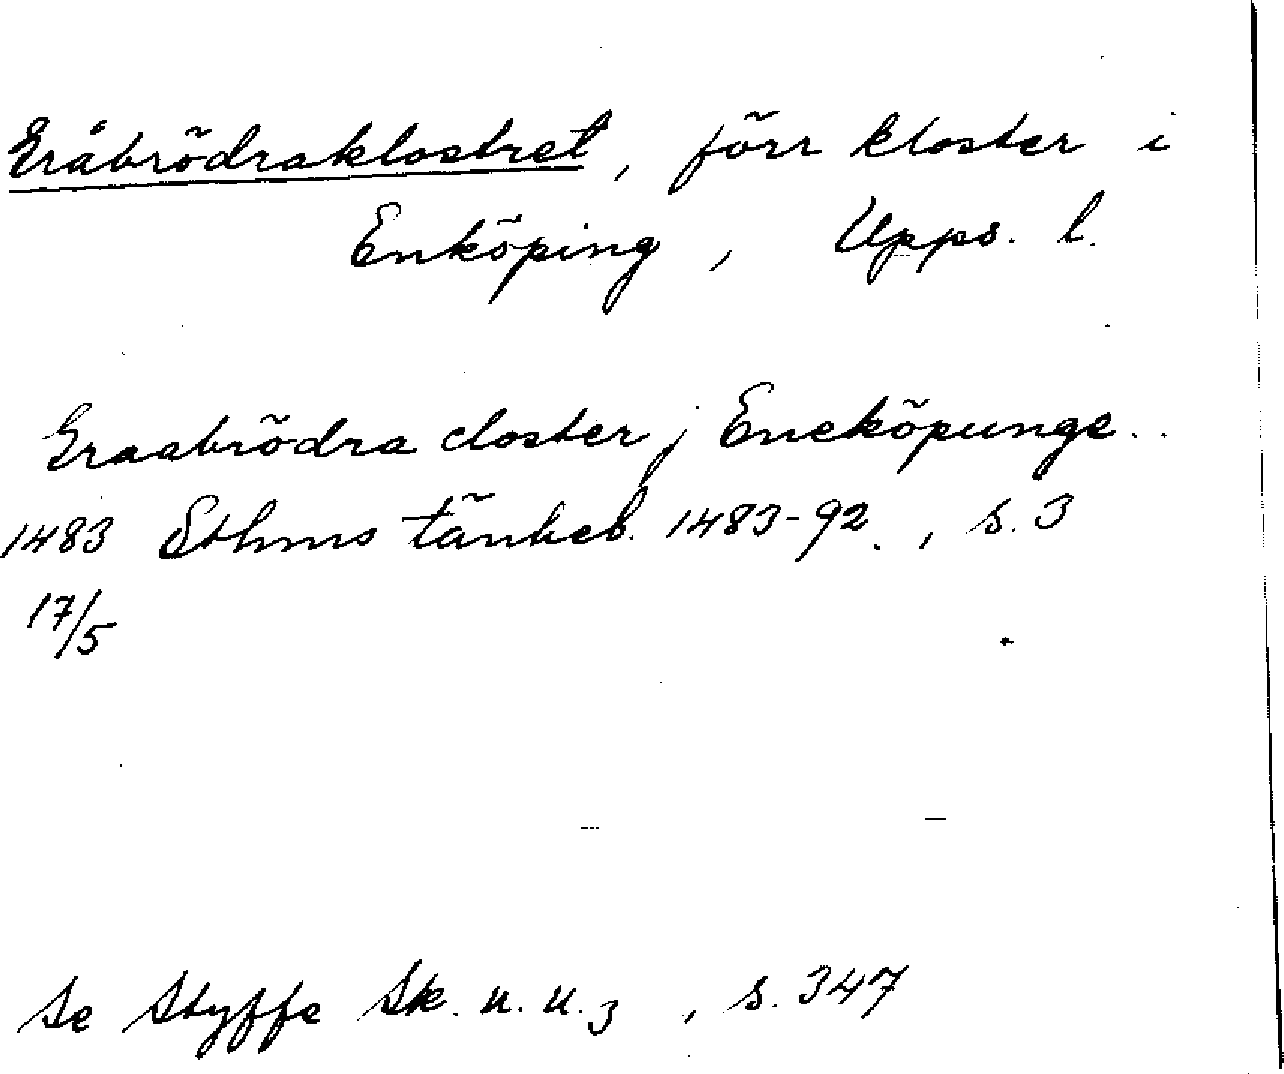 Gråbrödraklostret, förr kloster i
Enköping, Upps. l.
Graabrödra closter j Eneköpunge..
1483 Sthms tänkeb. 1483-92., s. 3
17/5
Se Styffe Sk. u. u. 3, s. 347